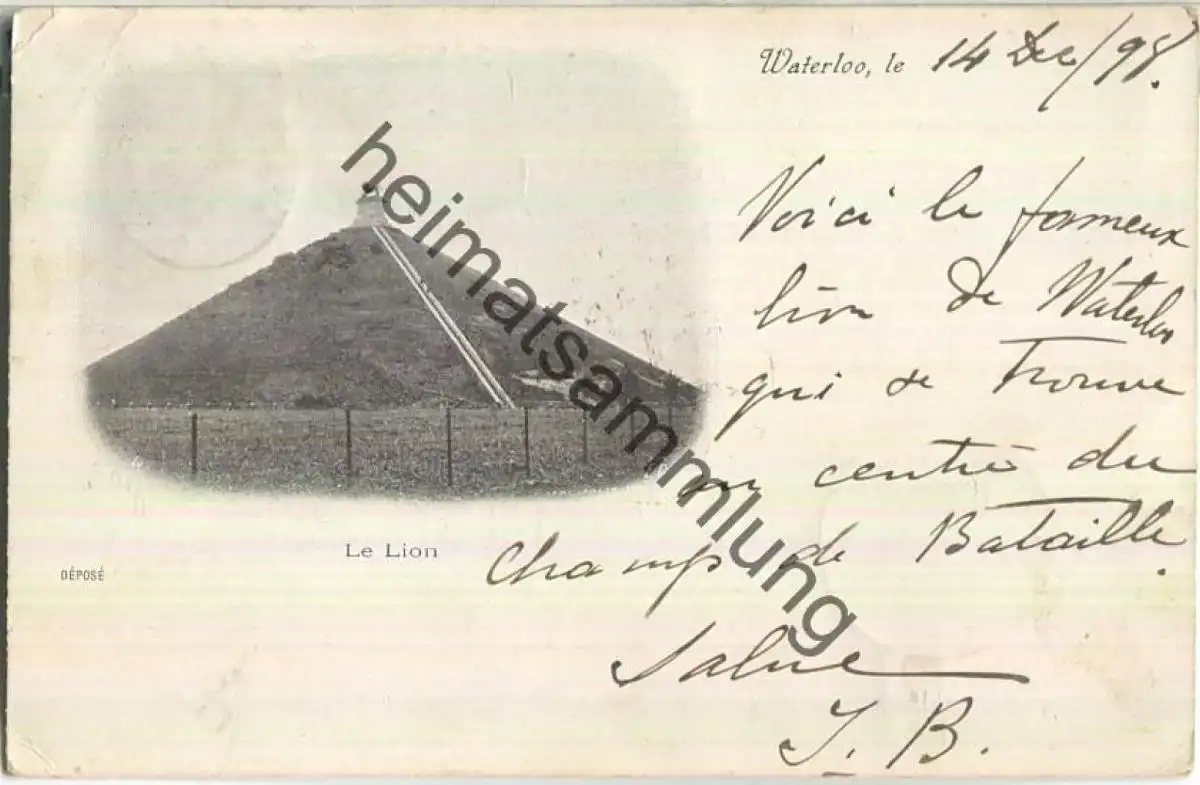 Waterloo, le 14 Dec/98.
Voici le fameux
lion de Waterloo
qui se trouve
au centre du
champ de Bataille.
Salue
J. B.
Le Lion
DÉPOSÉ
heimatsammlung